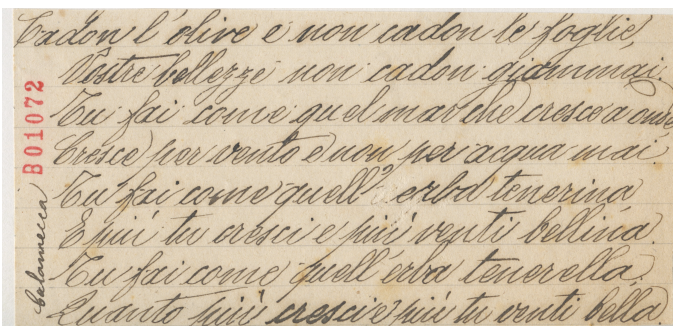 Cadon l'olive e non cadon le foglie,
Vostre bellezze non cadon giammai.
Tu fai come quel mar che cresce a onde
Cresce per vento e non per acqua mai.
Tu fai come quell'erba tenerina
E più tu cresci e più venti bellina.
Tu fai come quell'erba tenerella.
Quanto più cresci e più tu venti bella.
B01072